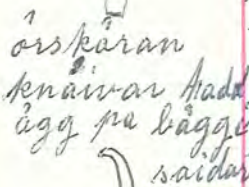 örskäran
knäivar hadd
ägg pa bägge
saidar